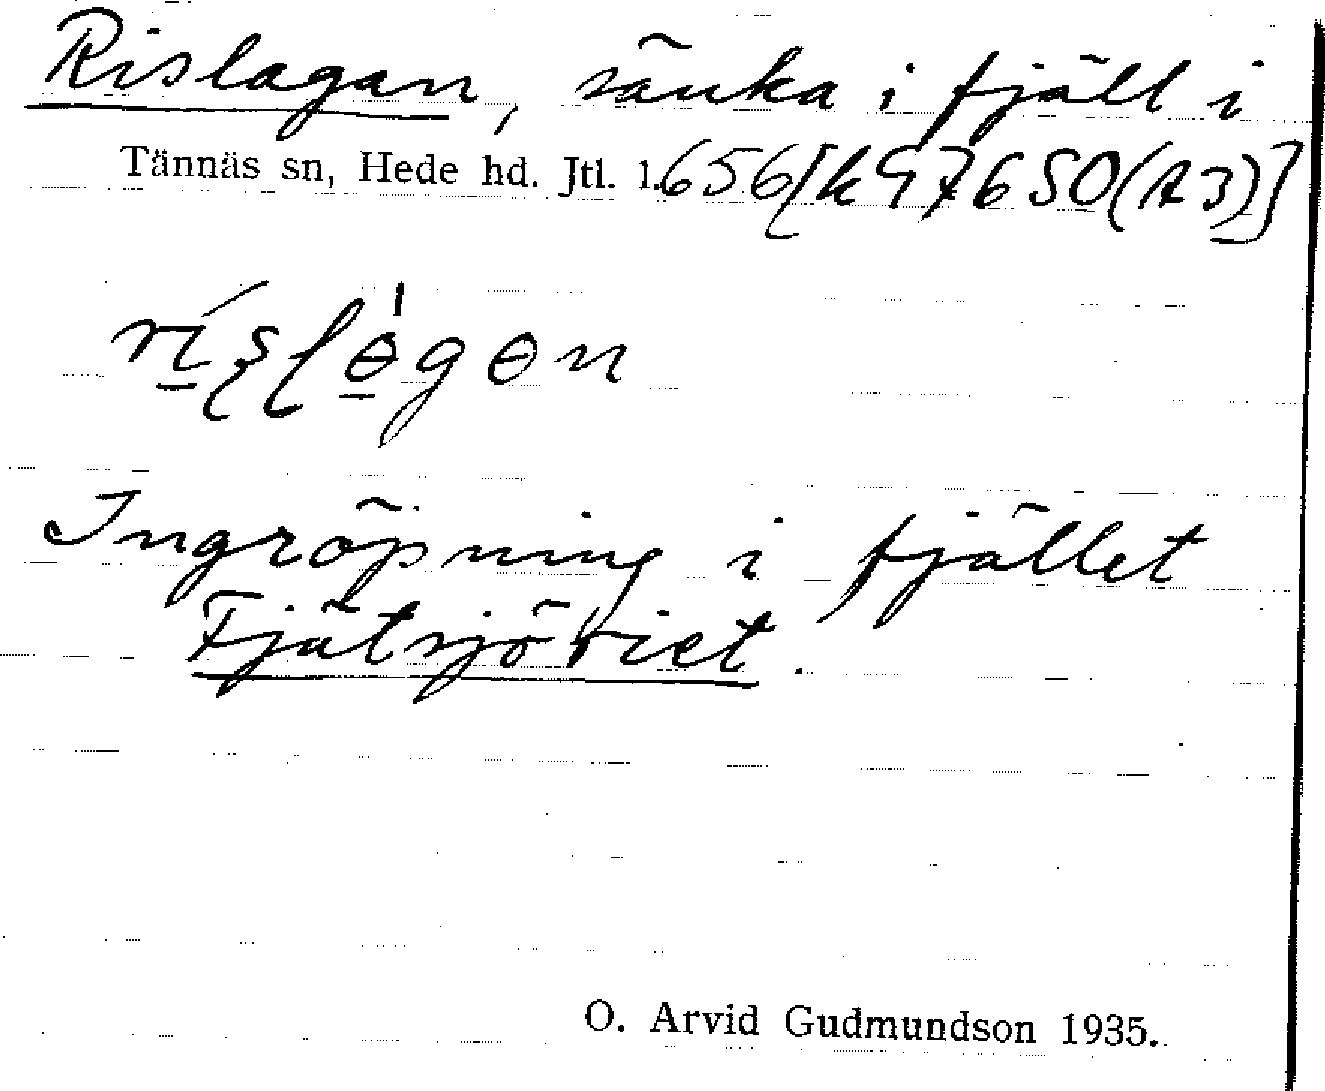 Rislagan, sänka i fjäll i
Tännäs sn, Hede hd. Jtl. l. 656 [k 97650 (A3)]
Ingröpning i fjället
Fjätsjöviet.
O. Arvid Gudmundson 1935.